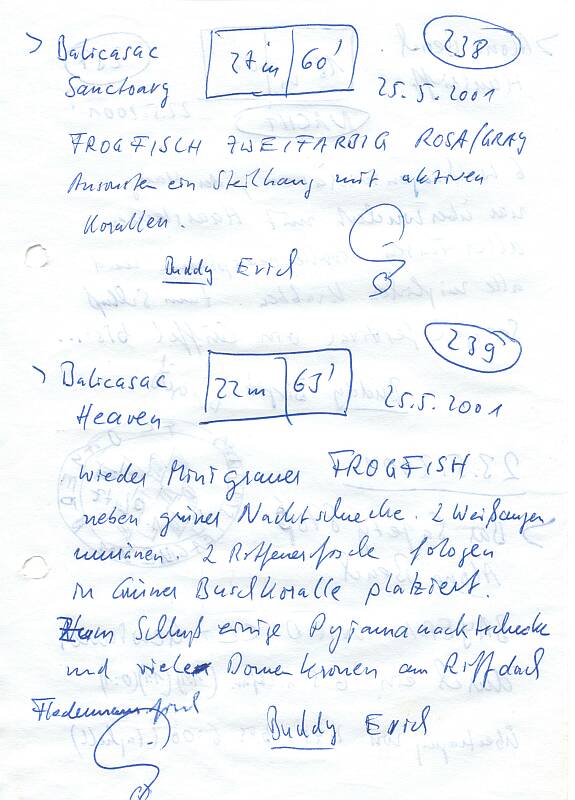 > Balicasac
27m | 60'
238
Sanctoary
25.5.2001
FROGFISCH ZWEIFARBIG ROSA/GRAY
Ansonsten ein Steilhang mit aktiven
Korallen.
Buddy Erich
239
> Balicasac
22m | 63'
Heaven
25.5.2001
wieder Minigrauer FROGFISH
neben grüner Nacktschecke. 2 Weißaugen
muränen. 2 fotogen
in Grüner Buschkoralle platziert.
Zum Schluß einige Pyjamanacktschecke
und viele Dornenkronen am Riffdach
Fledermausfisch
Buddy Erich